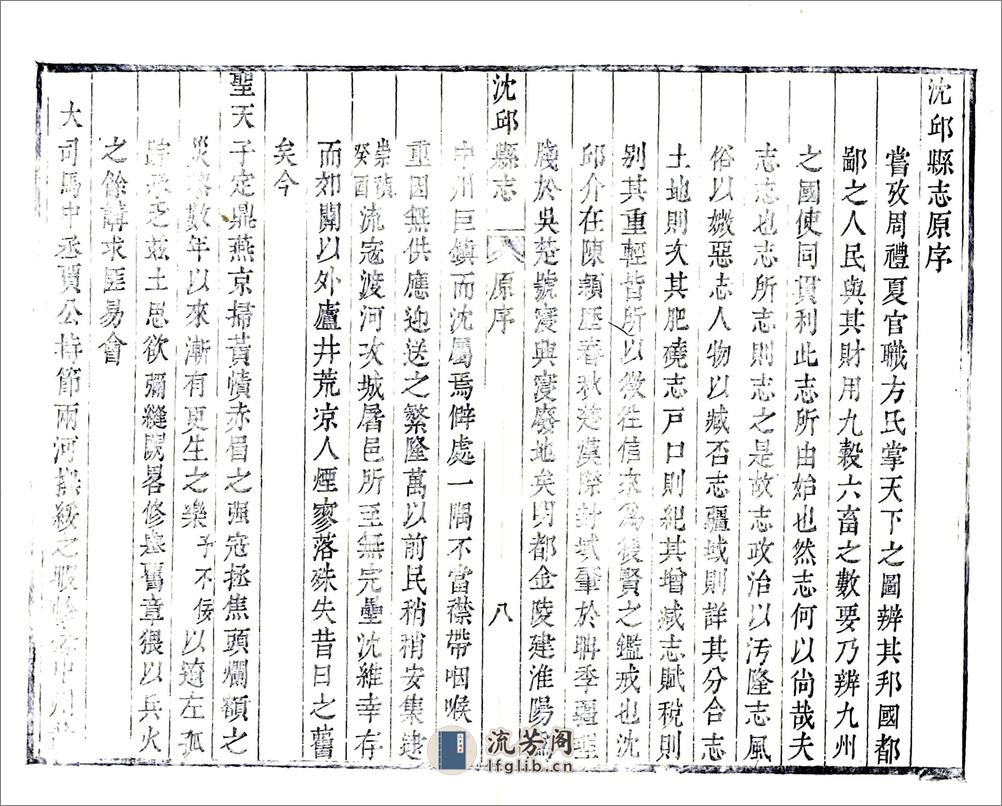 沈邱縣志原序
嘗攷周禮夏官職方氏掌天下之圖辨其邦國都
鄙之人民與其財用九穀六畜之數要乃辨九州
之國使同貫利此志所由始也然志何以尚哉夫
志志也志所志則志之是故志政治以汚隆志風
俗以媺惡志人物以臧否志疆域則詳其分合志
土地則次其肥磽志戸口則紀其增减志賦稅則
别其重輕皆所以徵往信來為後賢之鑑戒也沈
邱介在陳潁歷春秋楚漢際封域肇於聃季疆
於吳楚號寖與寖廢地矣明都金陵建淮陽為
沈邱縣志 原序 八
中州巨鎮而沈屬焉僻處一隅不當襟帶咽喉
重因無供應迎送之繁隆萬以前民稍稍安集逮
崇禎癸酉流寇渡河攻城屠邑所至無完壘沈維幸存
而郊關以外廬井荒凉人煙寥落殊失昔日之舊
矣今
聖天子定鼎燕京掃黃幘赤眉之强寇拯焦頭爛額之
災黎數年以來漸有更生之樂予不佞以遼左孤
承乏茲土思欲彌縫闕畧修舉舊章猥以兵火
之餘講求匪易會
大司馬中丞賈公持節兩河撫綏之暇中州
流芳阁
lfglib.cn